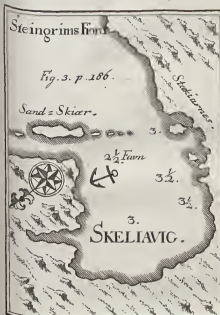 Steingrims Fiord
Fig. 3. p. 186.
Sand = Skiær.
3.
2½ Favn
3½.
3½.
3.
SKELIAVIG.